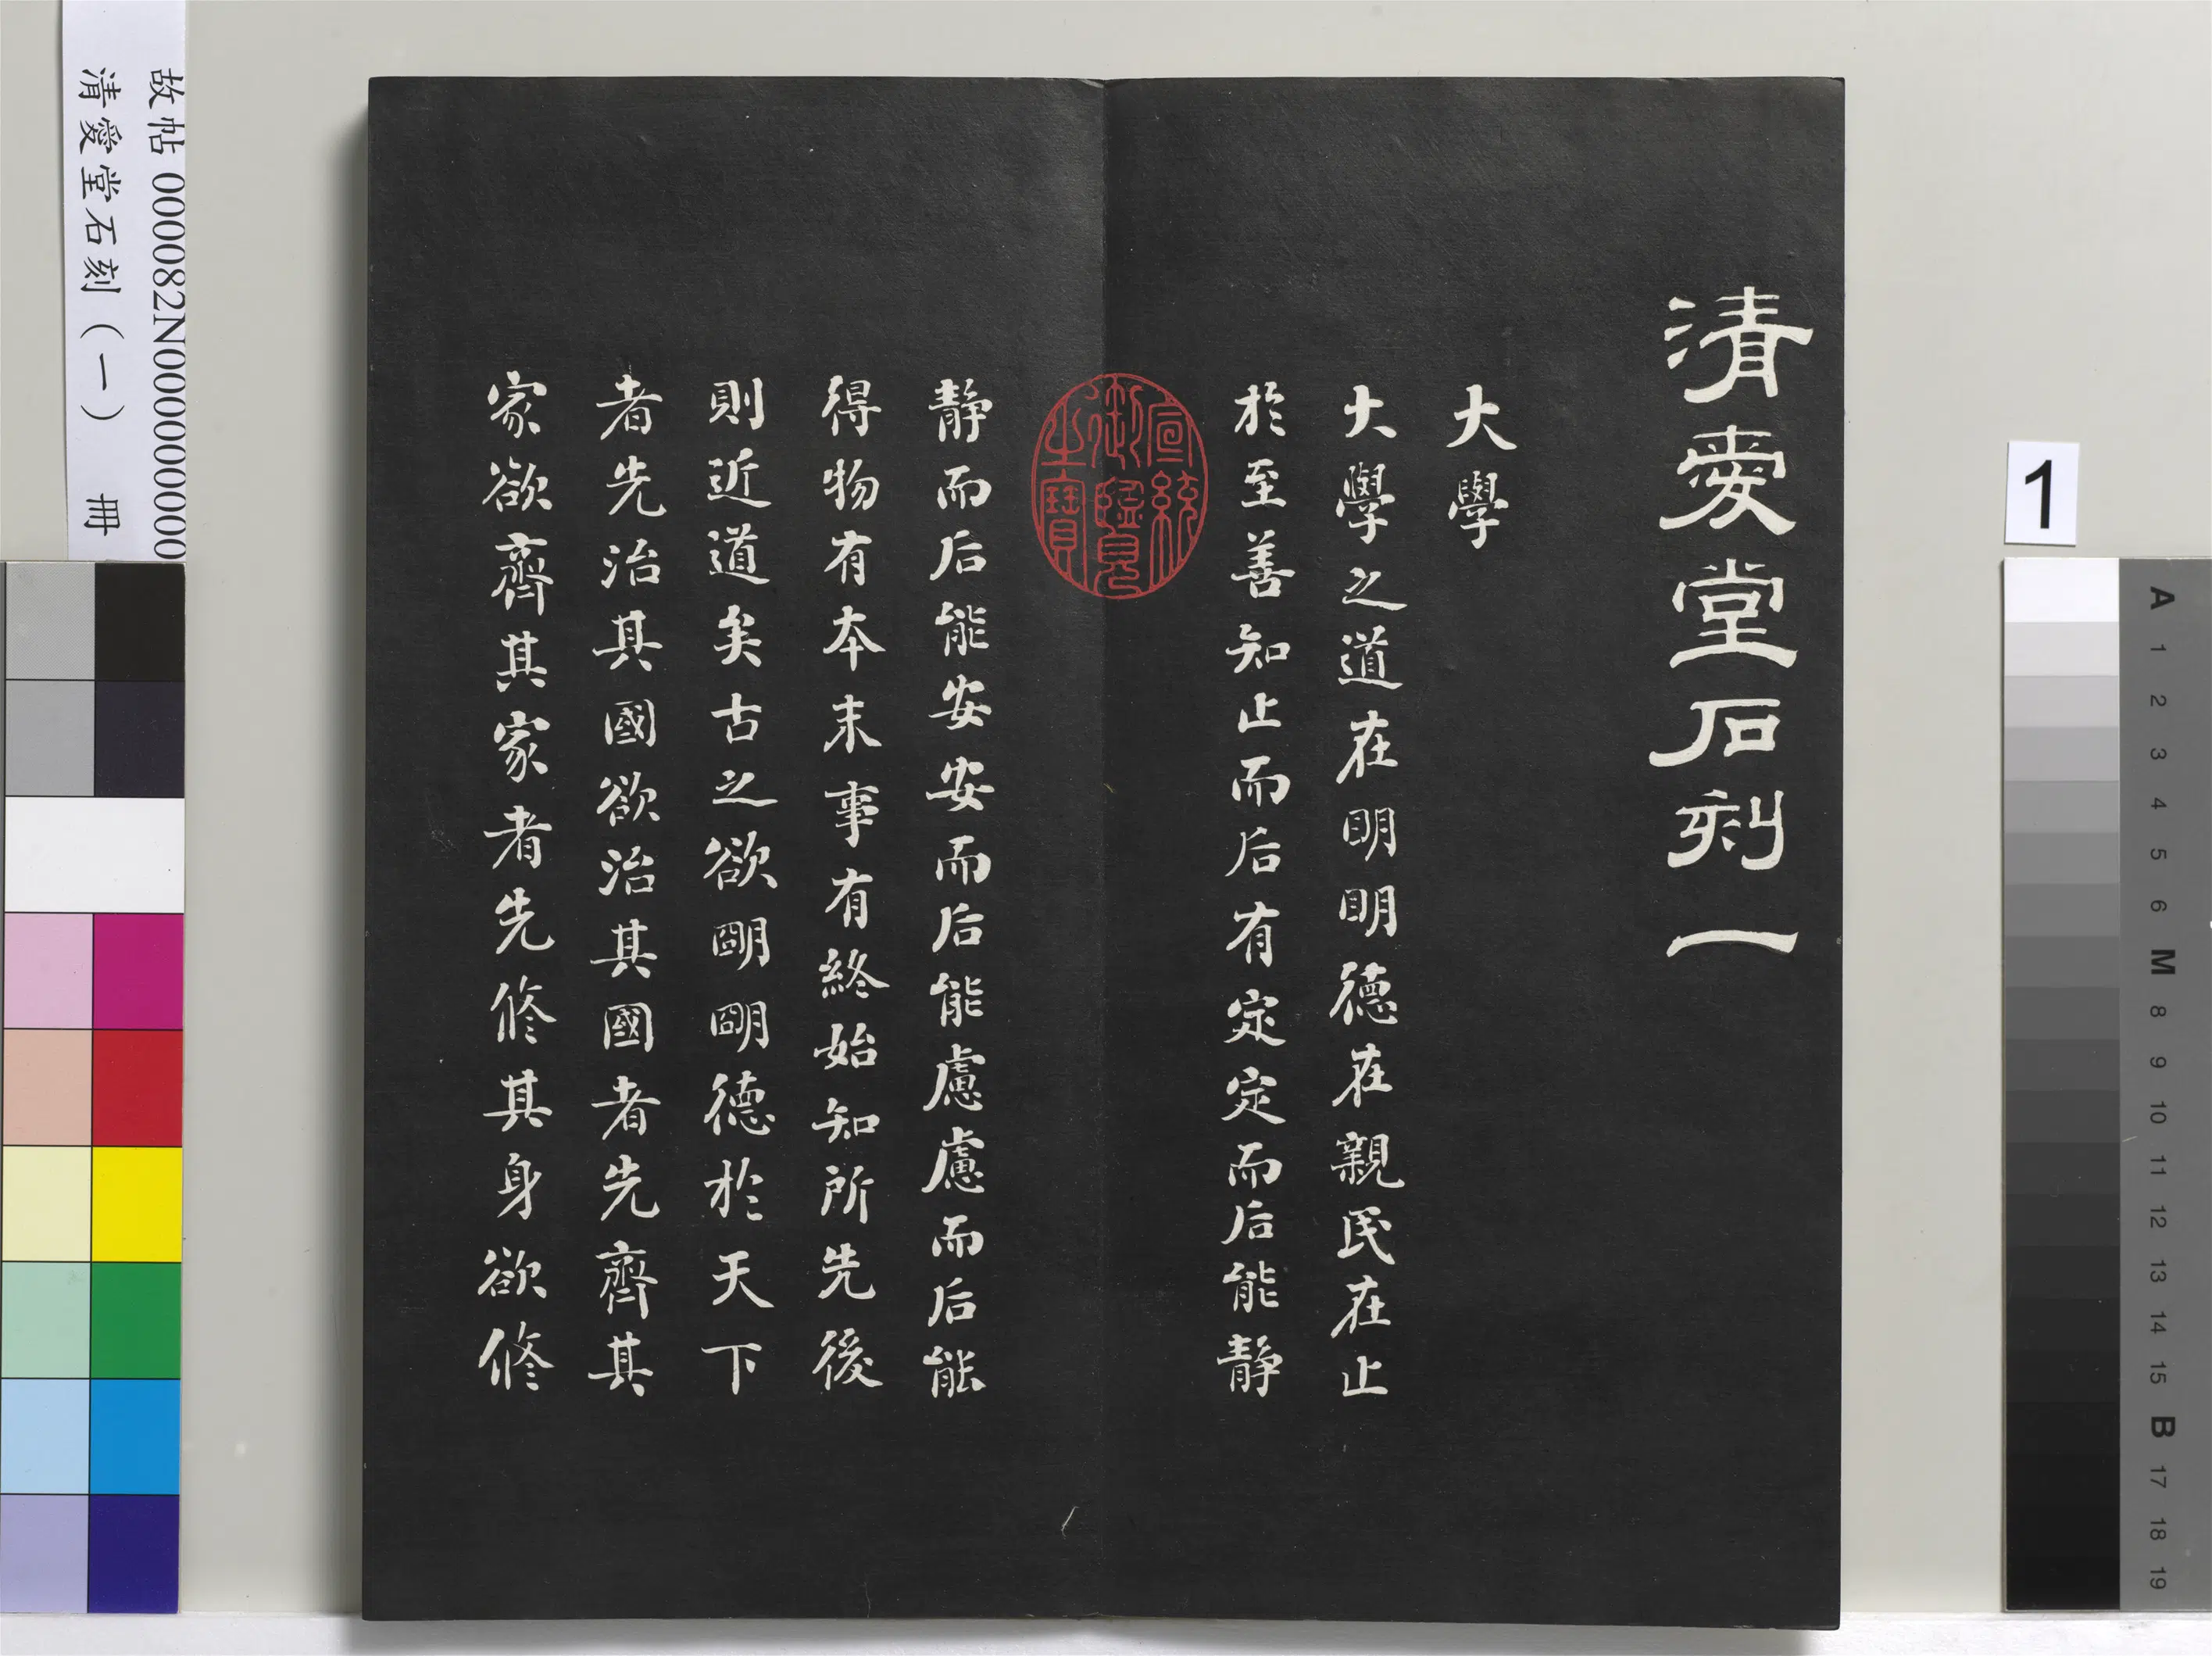 清愛堂石刻一
大學
大學之道在明明德在親民在止
於至善知止而后有定定而后能静
宣統御覽之寶
静而后能安安而后能慮慮而后能
得物有本末事有終始知所先後
則近道矣古之欲明明德於天下
者先治其國欲治其國者先齊其
家欲齊其家者先修其身欲修
故帖 000082N000000000
清愛堂石刻（一） 冊
1
A 1 2 3 4 5 6 M 8 9 10 11 12 13 14 15 B 17 18 19